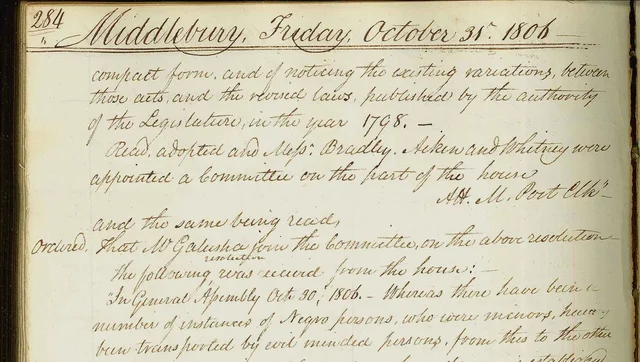 284
Middlebury, Friday, October 31st. 1806
compact form, and of noticing the existing variations, between
those acts, and the revised laws, published by the authority
of the Legislature, in the year 1798. —
Read, adopted and Messrs. Bradley, Aiken and Whitney were
appointed a Committee on the part of the house
Att. M. Post Clk"
and the same being read,
Ordered, That Mr Galusha join the Committee, on the above resolution
resolution
the following was received from the house: —
"In General Assembly Oct 30, 1806. — Whereas there have been a
number of instances of Negro persons, who were minors, have
been transported by evil minded persons, from this to the other
established